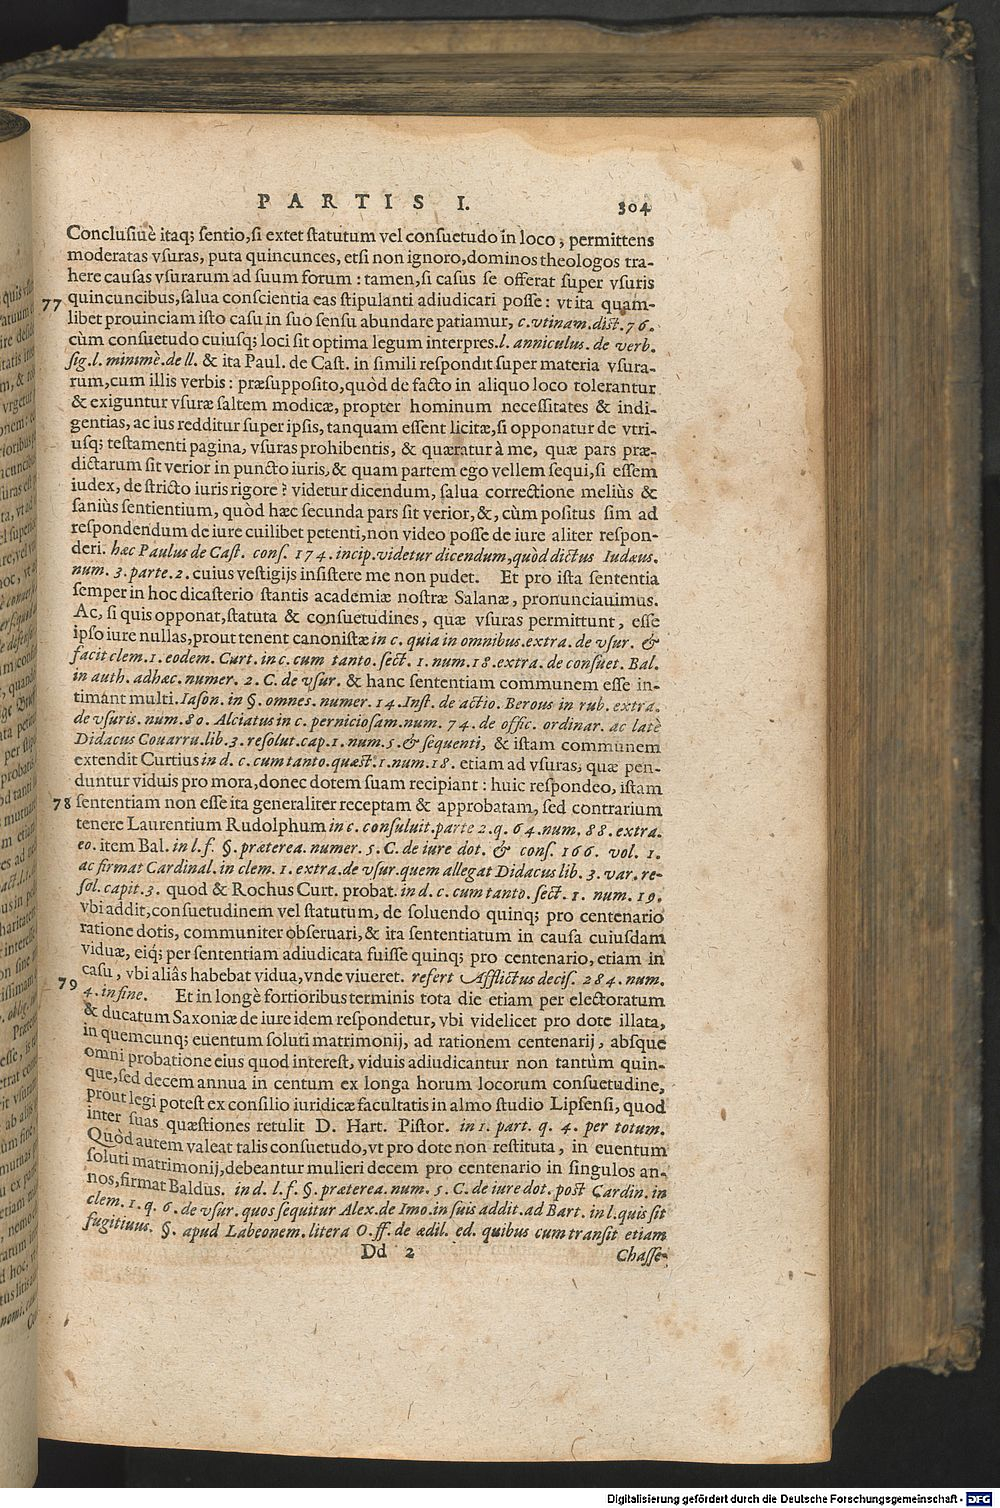 PARTIS I. 304
Conclusiuè itaq; sentio, si extet statutum vel consuetudo in loco, permittens
moderatas vsuras, puta quincunces, etsi non ignoro, dominos theologos tra-
here causas vsurarum ad suum forum : tamen, si casus se offerat super vsuris
77 quincuncibus, salua conscientia eas stipulanti adiudicari posse : vt ita quam-
libet prouinciam isto casu in suo sensu abundare patiamur, c. vtinam. dist. 76.
cùm consuetudo cuiusq; loci sit optima legum interpres. l. anniculus. de verb.
sig. l. minimè. de ll. & ita Paul. de Cast. in simili respondit super materia vsura-
rum, cum illis verbis : præsupposito, quòd de facto in aliquo loco tolerantur
& exiguntur vsuræ saltem modicæ, propter hominum necessitates & indi-
gentias, ac ius redditur super ipsis, tanquam essent licitæ, si opponatur de vtri-
usq; testamenti pagina, vsuras prohibentis, & quæratur à me, quæ pars præ-
dictarum sit verior in puncto iuris, & quam partem ego vellem sequi, si essem
iudex, de stricto iuris rigore ? videtur dicendum, salua correctione meliùs &
saniùs sentientium, quòd hæc secunda pars sit verior, &, cùm positus sim ad
respondendum de iure cuilibet petenti, non video posse de iure aliter respon-
deri. hæc Paulus de Cast. cons. 174. incip. videtur dicendum, quòd dictus Iudæus.
num. 3. parte. 2. cuius vestigijs insistere me non pudet. Et pro ista sententia
semper in hoc dicasterio stantis academiæ nostræ Salanæ, pronunciauimus.
Ac, si quis opponat, statuta & consuetudines, quæ vsuras permittunt, esse
ipso iure nullas, prout tenent canonistæ in c. quia in omnibus. extra. de vsur. &
facit clem. 1. eodem. Curt. in c. cum tanto. sect. 1. num. 18. extra. de consuet. Bal.
in auth. ad hæc. numer. 2. C. de vsur. & hanc sententiam communem esse in-
timant multi. Iason. in §. omnes. numer. 14. Inst. de actio. Berous in rub. extra.
de vsuris. num. 80. Alciatus in c. perniciosam. num. 74. de offic. ordinar. ac latè
Didacus Couarru. lib. 3. resolut. cap. 1. num. 5. & sequenti, & istam communem
extendit Curtius in d. c. cum tanto. quæst. 1. num. 18. etiam ad vsuras, quæ pen-
duntur viduis pro mora, donec dotem suam recipiant : huic respondeo, istam
78 sententiam non esse ita generaliter receptam & approbatam, sed contrarium
tenere Laurentium Rudolphum in c. consuluit. parte 2. q. 64. num. 88. extra.
eo. item Bal. in l. f. §. præterea. numer. 5. C. de iure dot. & cons. 166. vol. 1.
ac firmat Cardinal. in clem. 1. extra. de vsur. quem allegat Didacus lib. 3. var. re-
sol. capit. 3. quod & Rochus Curt. probat. in d. c. cum tanto. sect. 1. num. 19.
vbi addit, consuetudinem vel statutum, de soluendo quinq; pro centenario
ratione dotis, communiter obseruari, & ita sententiatum in causa cuiusdam
viduæ, eiq; per sententiam adiudicata fuisse quinq; pro centenario, etiam in
casu, vbi aliâs habebat vidua, vnde viueret. refert Afflictus decis. 284. num.
79 4. in fine. Et in longè fortioribus terminis tota die etiam per electoratum
& ducatum Saxoniæ de iure idem respondetur, vbi videlicet pro dote illata,
in quemcunq; euentum soluti matrimonij, ad rationem centenarij, absque
omni probatione eius quod interest, viduis adiudicantur non tantùm quin-
que, sed decem annua in centum ex longa horum locorum consuetudine,
prout legi potest ex consilio iuridicæ facultatis in almo studio Lipsensi, quod
inter suas quæstiones retulit D. Hart. Pistor. in 1. part. q. 4. per totum.
Quòd autem valeat talis consuetudo, vt pro dote non restituta, in euentum
soluti matrimonij, debeantur mulieri decem pro centenario in singulos an-
nos, firmat Baldus. in d. l. f. §. præterea. num. 5. C. de iure dot. post Cardin. in
clem. 1. q. 6. de vsur. quos sequitur Alex. de Imo. in suis addit. ad Bart. in l. quis sit
fugitiuus. §. apud Labeonem. litera O. ff. de ædil. ed. quibus cum transit etiam
Dd 2 Chasse-
Digitalisierung gefördert durch die Deutsche Forschungsgemeinschaft - DFG